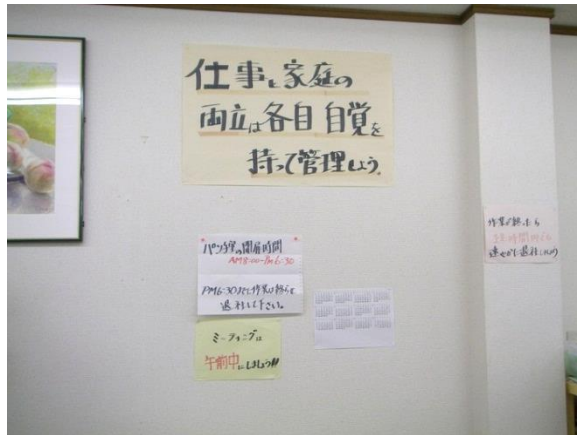 仕事と家庭の
両立は各自自覚を
持って管理しよう。
パソコン室の開催時間
AM8:00~PM6:30
PM6:30までに作業は終らせ
退社して下さい。
ミーティングは
午前中にしましょう!!
作業が終ったら
速やかに退社しよう